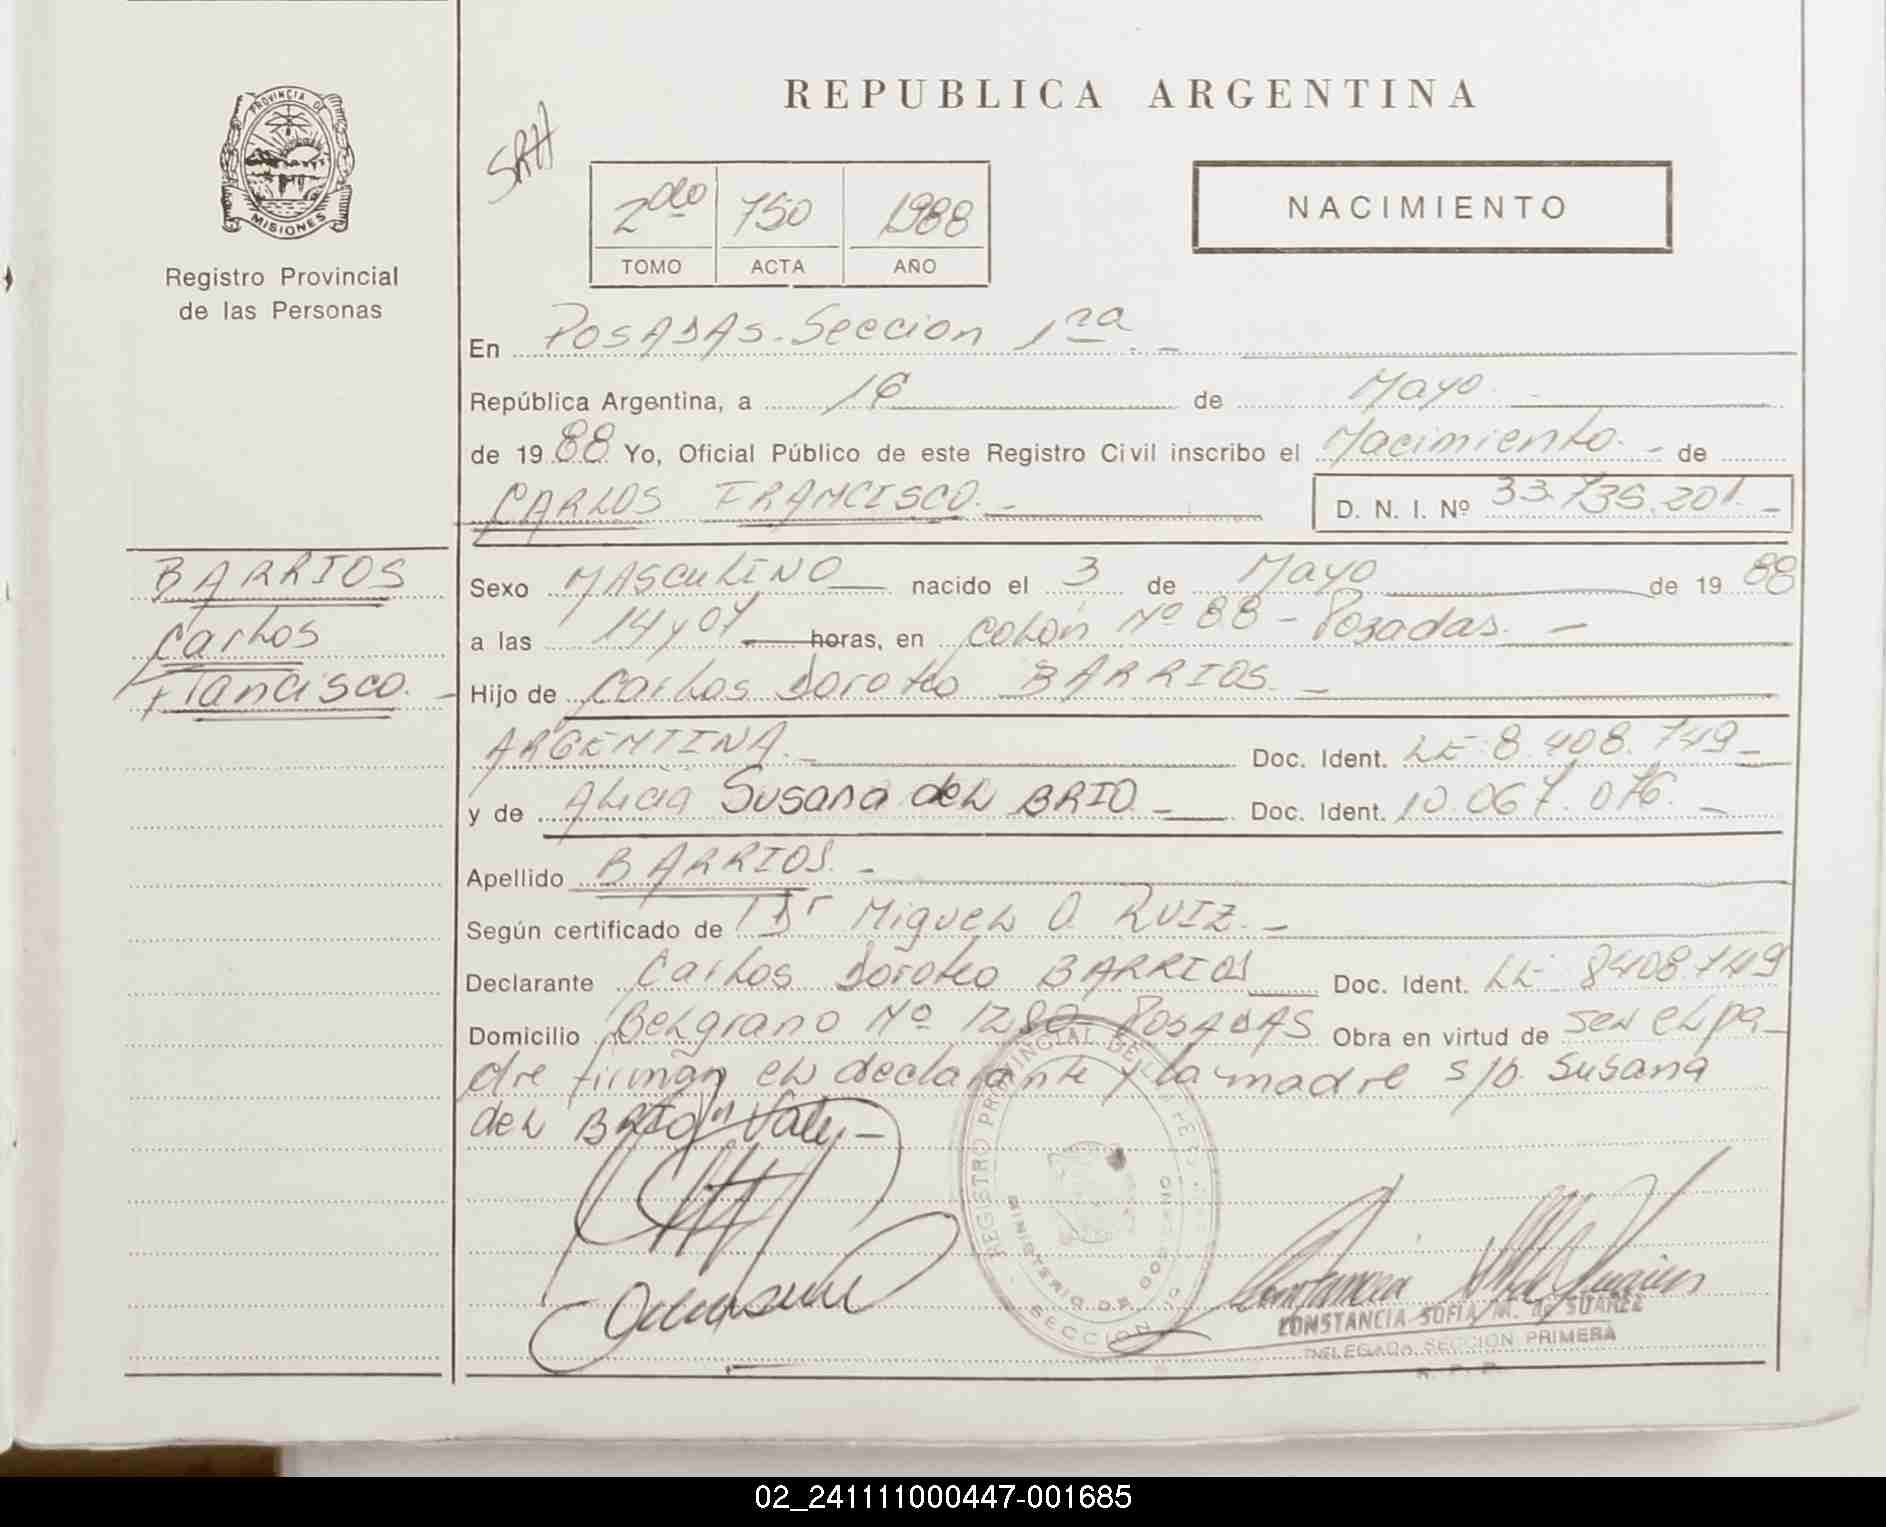 REPUBLICA ARGENTINA
PROVINCIA DE
MISIONES
Registro Provincial
de las Personas
SRH
2do 750 1988
TOMO ACTA AÑO
NACIMIENTO
En POSADAS. Seccion 1ra. -
República Argentina, a 16 de Mayo.
de 1988 Yo, Oficial Público de este Registro Civil inscribo el Nacimiento. - de
CARLOS FRANCISCO. - D. N. I. Nº 33.735.201. -
BARRIOS
Carlos
Francisco. -
Sexo MASCULINO nacido el 3 de Mayo de 1988
a las 14 y 07 horas, en Colón Nº 88 - Posadas. -
Hijo de Carlos Doroteo BARRIOS. -
ARGENTINA. - Doc. Ident. LE 8.408.749 -
y de Alicia Susana del BRIO - Doc. Ident. 10.067.076. -
Apellido BARRIOS. -
Según certificado de Dr Miguel O. RUIZ. -
Declarante Carlos Doroteo BARRIOS Doc. Ident. LE 8408.749
Domicilio Belgrano Nº 1280 POSADAS Obra en virtud de ser el pa-
dre firman el declarante y la madre s/b. Susana
del BRIO Vale -
REGISTRO PROVINCIAL DE LAS PERSONAS
MINISTERIO DE GOBIERNO
SECCION
CONSTANCIA SOFIA M. de SUAREZ
DELEGADA SECCION PRIMERA
R. P. P.
02_241111000447-001685